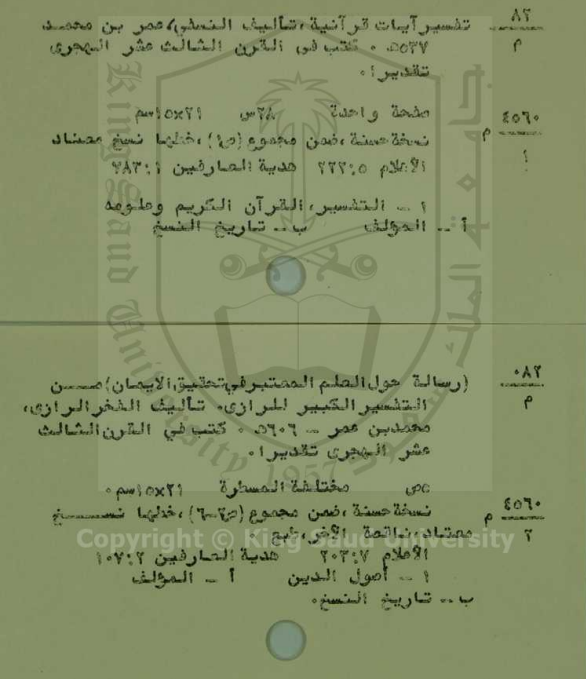 ٨٢ تفسير آيات قرآنية ،تأليف النسفي،عمر بن محمد
م ٥٣٧هـ ٠ كتب في القرن الثالث عشر الهجرى
تقديرا ٠
٤٥٦٠ صفحة واحدة ٢٨س ٢١×١٥سم
م نسخة حسنة ،ضمن مجموع (ص١) ،خطها نسخ معتاد
١ الأعلام ٢٢٢:٥ هدية العارفين ٧٨٣:١
١ ــ التفسير، القرآن الكريم وعلومه
أ ــ المؤلف ب ــ تاريخ النسخ
٠٨٢ (رسالة حول العلم المعتبر في تحقيق الايمان) مــن
م التفسير الكبير للرازى٠ تأليف الفخر الرازى،
محمد بن عمر ــ ٦٠٦هـ ٠ كتب في القرن الثالث
عشر الهجرى تقديرا ٠
٥ص مختلفة المسطرة ٢١×١٥سم ٠
٤٥٦٠ نسخة حسنة ،ضمن مجموع (ص٢-٦) ،خطها نســـخ
م
٢ معتاد ،ناقصة الآخر، طبع
الأعلام ٢٠٣:٧ هدية العارفين ١٠٧:٢
١ ــ أصول الدين أ ــ المؤلف
ب ــ تاريخ النسخ٠
جامعة الملك سعود
King Saud University
1957
Copyright © King Saud University